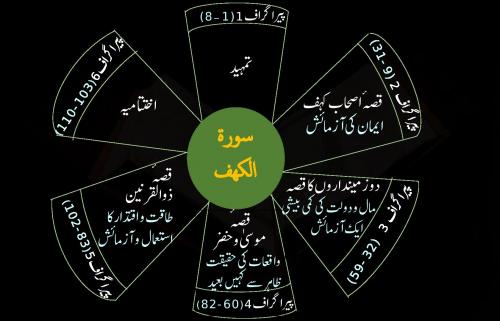 سورة
الكهف
پیرا گراف 1 (1-8)
تمہید
پیرا گراف 2 (9-31)
قصہ اصحاب کہف
ایمان کی آزمائش
پیرا گراف 3 (32-59)
دو زمینداروں کا قصہ
مال و دولت کی کمی بیشی
ایک آزمائش
قصہ
موسیٰ و خضر
واقعات کی حقیقت
ظاہر سے کہیں بعید
پیرا گراف 4 (60-82)
پیرا گراف 5 (83-102)
قصہ
ذوالقرنین
طاقت و اقتدار کا
استعمال و آزمائش
پیرا گراف 6 (103-110)
اختتامیہ